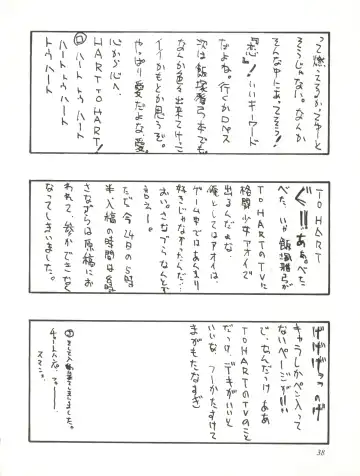 って燃えるかってゆーと
そうじゃない。なんか
そんな中にあってそう!
『恋』!いいキーワード
だよね。行くかDNAス
次は飯塚雅弓本でも
なんか色々出来てけっこ
イイかもとか思うぞ。
やっぱり愛だよな、愛
心から心へ、
HART TO HART!
ハート トゥ ハート
ハート トゥ ハート
トゥ ハート
TO HART
ぐ!!ああ。べた。
べた。いや飯塚雅弓が
TO HARTのTVに
格闘少女アオイで
出るんだよな
俺としてはアオイは、
ゲーム中ではあんまり
好きじゃなかったんだ…
おい。さなづらなんとか
しろよー。
ただ今24日の5時
半入稿の時間は8時
さなづらは原稿にお
われて、参加できなく
なってしまいました。
げげげっっのげ
キャラしかペン入って
ないページが!!!
じ、なんだっけ ああ
TO HARTのTVのこと
だっけ、デキがいいと
いいな、フーかたすけて
まがもたなすぎ
そして入稿等でしまいました。
スマン。
38